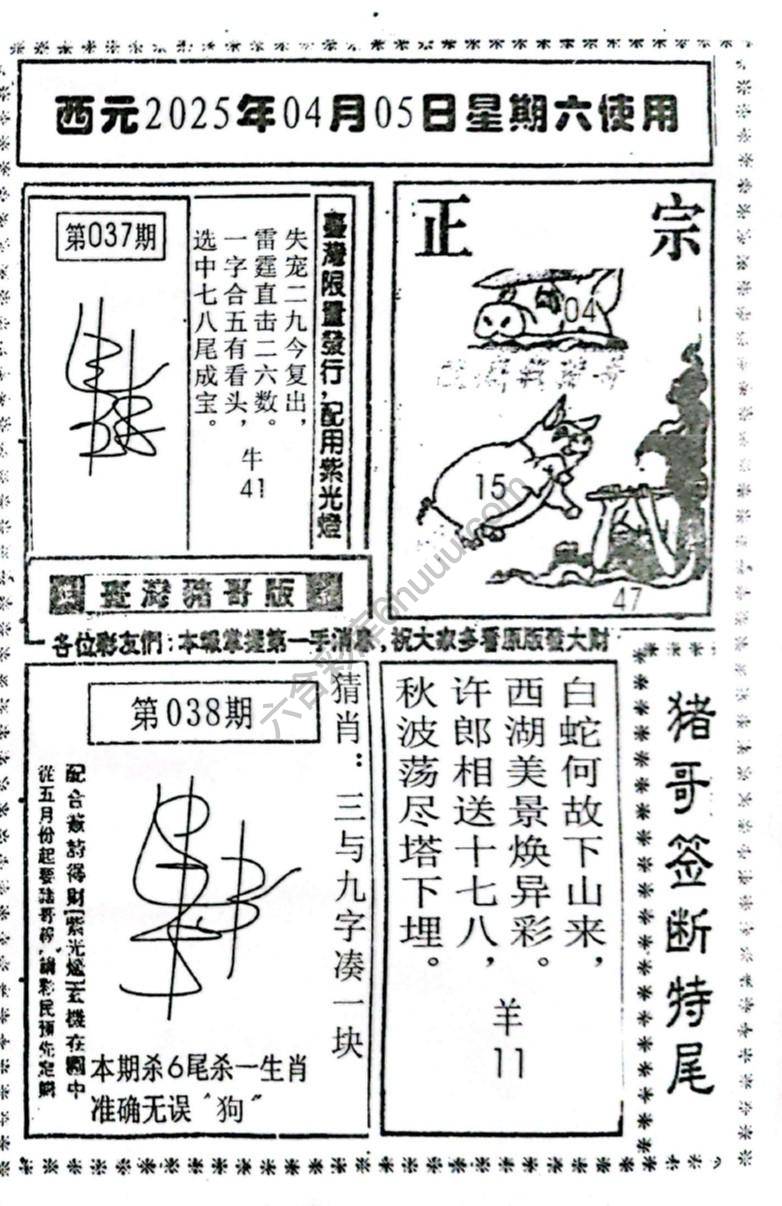 西元2025年04月05日星期六使用
第037期
臺灣限量發行，配用紫光燈
失宠二九今复出，
雷霆直击二六数。
一字合五有看头，
选中七八尾成宝。
牛
41
正宗
04
15
47
臺灣豬哥版
各位彩友們：本報掌握第一手消息，祝大家多看原版發大財
第038期
猜肖：三与九字凑一块
配合簽詩得財
紫光燈
玄機在圖中
從五月份起要豬哥報，請彩民預先定購
本期杀6尾杀一生肖
准确无误“狗”
白蛇何故下山来，
西湖美景焕异彩。
许郎相送十七八，
秋波荡尽塔下埋。
羊
11
猪哥签断特尾
六合彩库6huuu.com